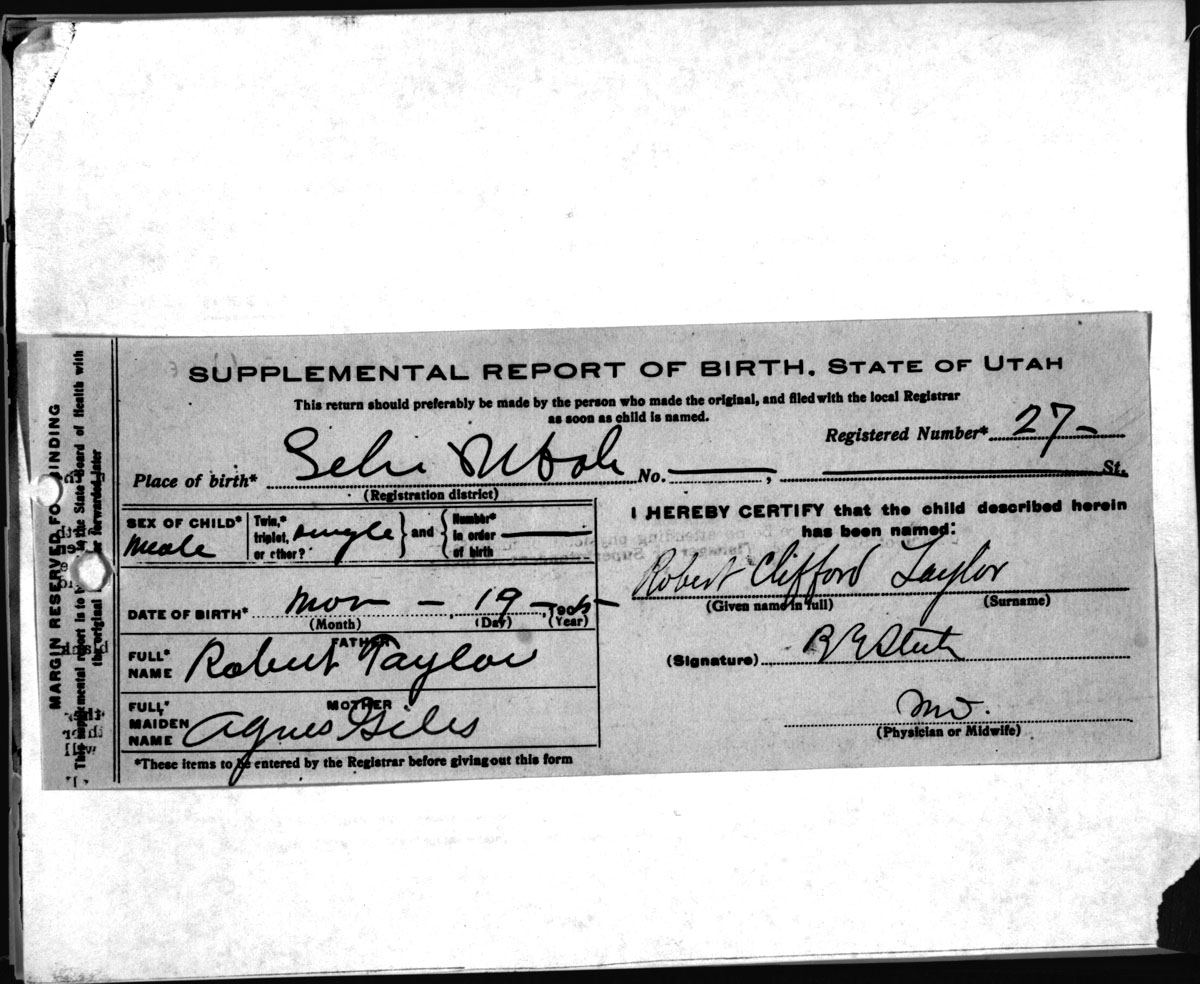 SUPPLEMENTAL REPORT OF BIRTH. STATE OF UTAH
This return should preferably be made by the person who made the original, and filed with the local Registrar
as soon as child is named.
Registered Number* 27-
Place of birth* Lehi Utah No. , St.
(Registration district)
SEX OF CHILD* Male
Twin,* triplet, or other? single and Number* in order of birth
DATE OF BIRTH* 19 190
(Month) (Day) (Year)
FATHER
FULL* NAME Robert Taylor
MOTHER
FULL* MAIDEN NAME Agnes Giles
*These items to be entered by the Registrar before giving out this form
I HEREBY CERTIFY that the child described herein
has been named:
Robert Clifford Taylor
(Given name in full) (Surname)
(Signature)
MD.
(Physician or Midwife)
MARGIN RESERVED FOR BINDING
This supplemental report is to be the State Board of Health with
the original forwarded later